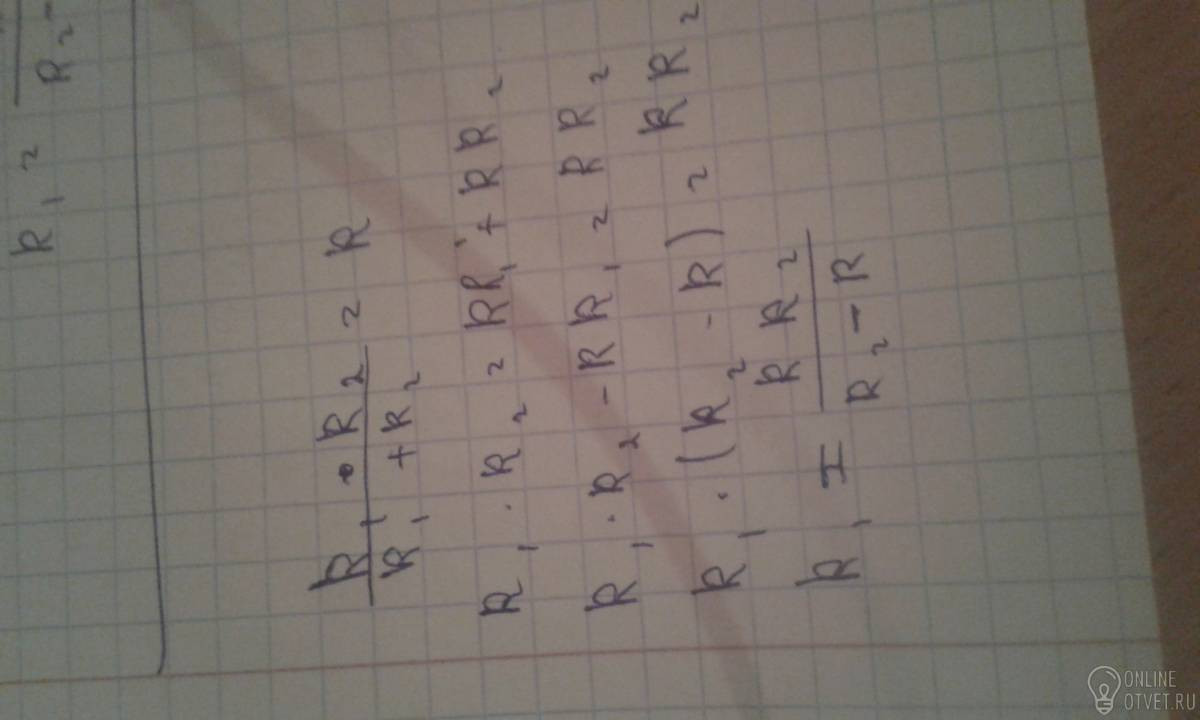 R₁ = 
R₂ -
R₁ • R₂ / R₁ + R₂ = R
R₁ · R₂ = RR₁ + RR₂
R₁ · R₂ - RR₁ = RR₂
R₁ · (R₂ - R) = RR₂
R₁ = RR₂ / R₂ - R
ONLINE
OTVET.RU